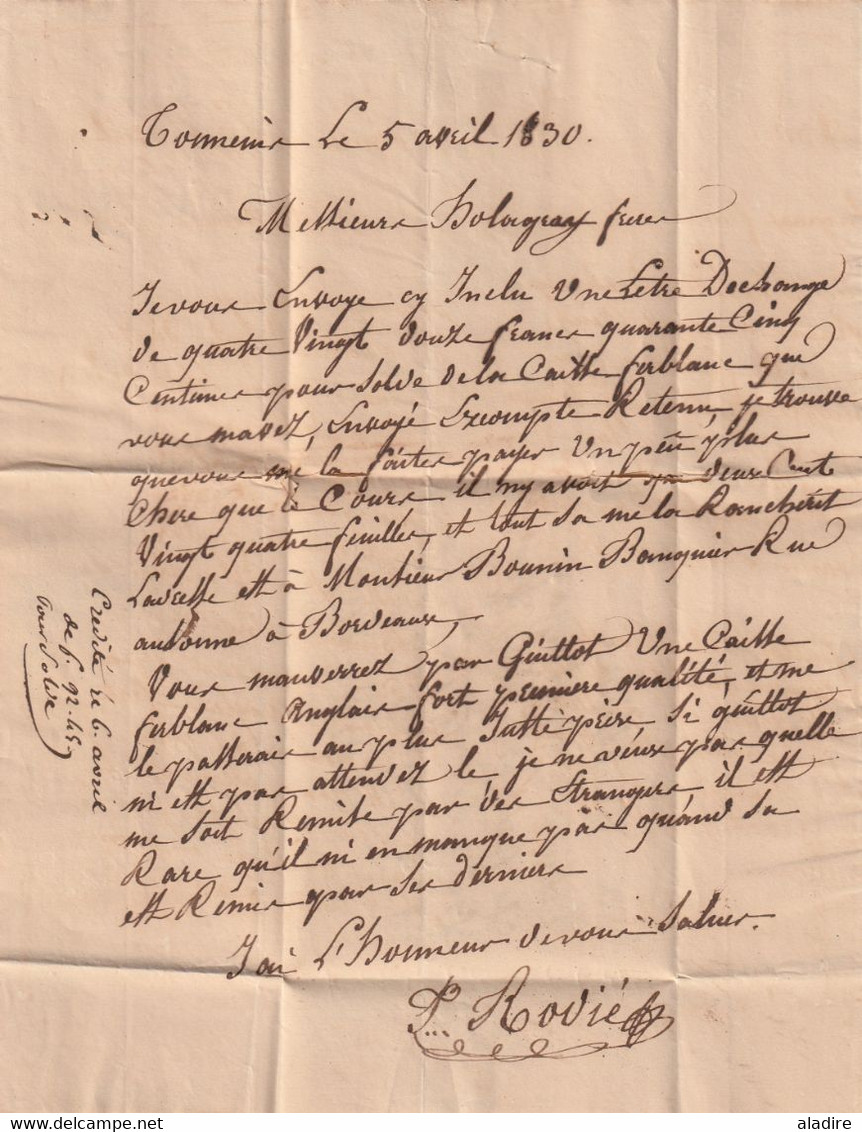 Tonneins Le 5 avril 1830.
Messieurs freres
Je vous Envoye cy Inclu Une Letre De change
de quatre Vingt douze francs quarante Cinq
Centimes pour Solde de la Caisse ferblanc que
vous mavez Envoyé Lescompte Retenu je trouve
que vous me la faites payer Un peu plus
Chere que le Cours il ny avoit que deux Cent
Vingt quatre feuilles, et tout sa me la Rancherit
Laditte est à Monsieur Bounin Banquier Rue
à Bordeaux,
Vous manverrez par Guittot Une Caisse
ferblanc Anglais fort premiere qualité, et me
le passerais au plus Jutte prix Si guittot
ni est pas attendez le je ne veux pas quelle
me soit Remise par des Etrangers il est
Rare qu'il ni en manque pas quand sa
est Remis par Ses derniers
Jai L'honneur de vous Saluer.
P... Rovié
Credité le 6. avril
de f. 92.45
pour Solde
aladire
www.delcampe.net